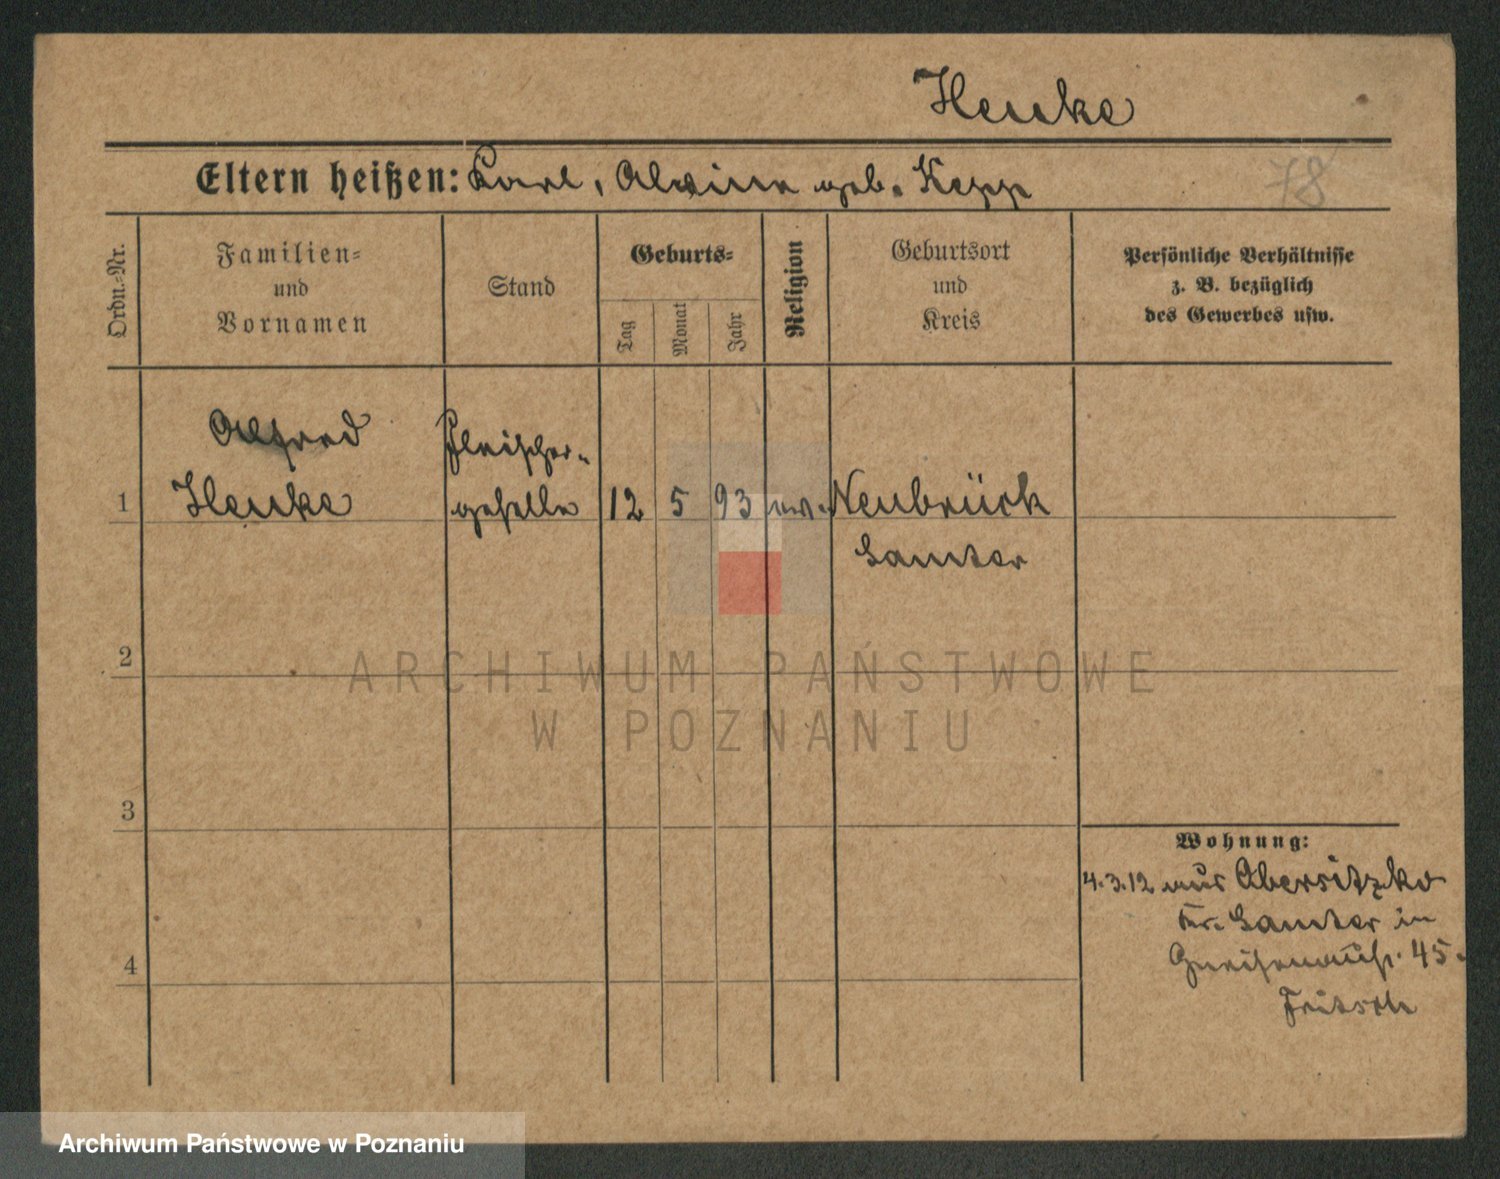 Henke
Eltern heißen: Karl, Alwine geb. Kepp
78
Ordn.-Nr.
Familien-
und
Vornamen
Stand
Geburts-
Tag
Monat
Jahr
Religion
Geburtsort
und
Kreis
Persönliche Verhältnisse
z. B. bezüglich
des Gewerbes usw.
Alfred
Fleischer-
1 Henke geselle 12 5 93 ev. Neubrück
Samter
2
3
4
Wohnung:
4.3.12 aus Obersitzko
Kr. Samter in
Gneisenaustr. 45.
Fritsch
ARCHIWUM PAŃSTWOWE
W POZNANIU
Archiwum Państwowe w Poznaniu